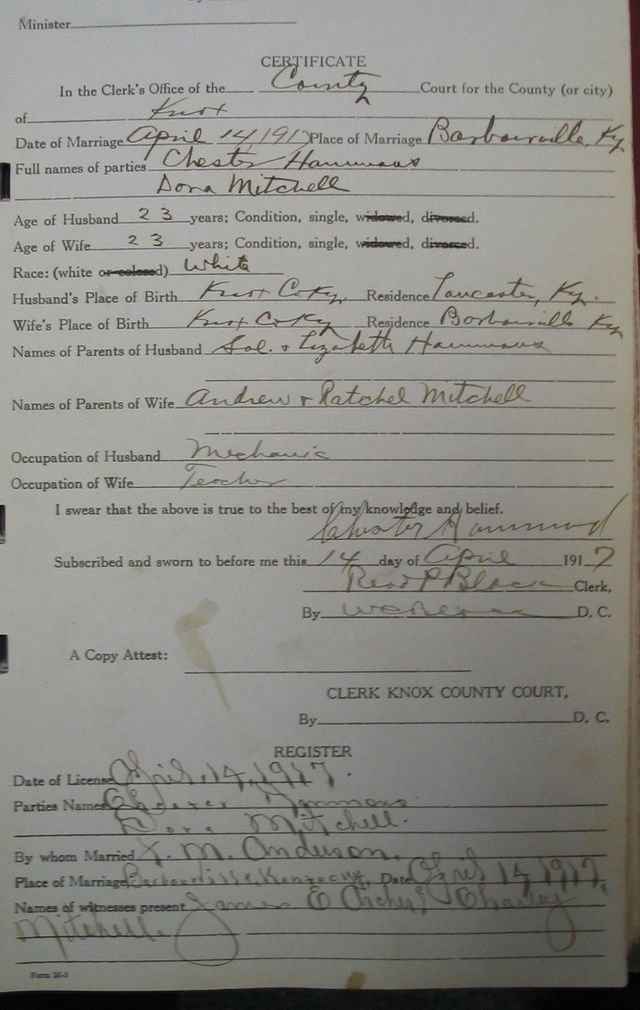 Minister
CERTIFICATE
In the Clerk's Office of the County Court for the County (or city)
of Knox
Date of Marriage April 14, 1917 Place of Marriage Barbourville, Ky
Full names of parties Chester Hammons
Dora Mitchell
Age of Husband 23 years; Condition, single, widowed, divorced.
Age of Wife 23 years; Condition, single, widowed, divorced.
Race: (white or colored) White
Husband's Place of Birth Knox Co. Ky. Residence Lancaster, Ky.
Wife's Place of Birth Knox Co Ky Residence Barbourville Ky
Names of Parents of Husband Sol. & Lizabeth Hammons
Names of Parents of Wife Andrew & Ratchel Mitchell
Occupation of Husband Mechanic
Occupation of Wife Teacher
I swear that the above is true to the best of my knowledge and belief.
Chester Hammond
Subscribed and sworn to before me this 14 day of April 1917
Read P Black Clerk,
By D. C.
A Copy Attest:
CLERK KNOX COUNTY COURT,
By D. C.
REGISTER
Date of License April, 14, 1917.
Parties Names Hammons
Dora Mitchell.
By whom Married J. M. Anderson.
Place of Marriage Barbourville, Kentucky, Date April 14, 1917,
Names of witnesses present James E Archer & Charley
Mitchell.
Form 26-3